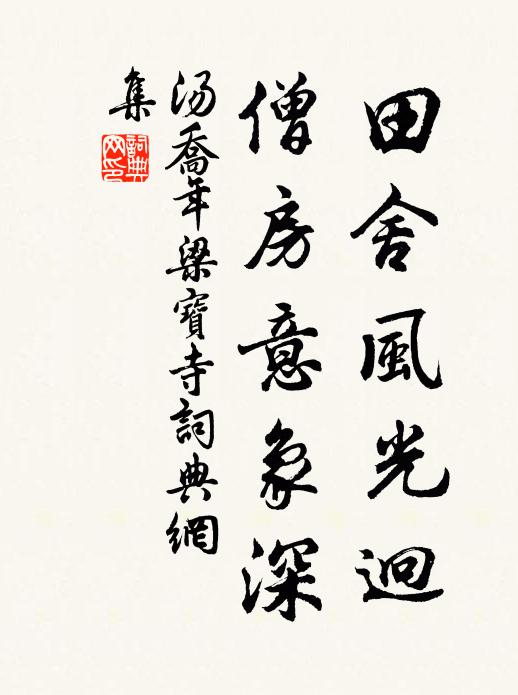 田舍風光迥
僧房意象深
汤喬年梁寶寺詞典網
集
詞典
网印